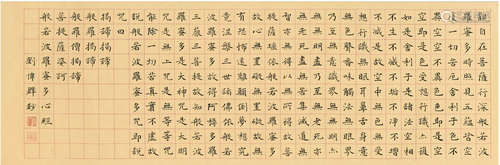 觀自在菩薩行深般若波
羅蜜多時照見五蘊皆空度
一切苦厄舍利子色不
異空空不異色色即是空
空即是色受想行識亦復
如是舍利子是諸法空相
不生不滅不垢不淨不增
不減是故空中無色無受想
行識無眼耳鼻舌身意
無色聲香味觸法無眼界
乃至無意識界無無明亦
無無明盡乃至無老死亦
無老死盡無苦集滅道無
智亦無得以無所得故菩
提薩埵依般若波羅蜜多
故心無罣礙無罣礙故無
有恐怖遠離顛倒夢想究
竟涅槃三世諸佛依般若
波羅蜜多故得阿耨多羅
三藐三菩提故知般若波
羅蜜多是大神咒是大明
咒是無上咒是無等等咒
能除一切苦真實不虛故
說般若波羅蜜多咒即說
咒曰
揭諦揭諦
般羅揭諦
般羅僧揭諦
菩提薩婆訶
般若波羅蜜多心經
劉博